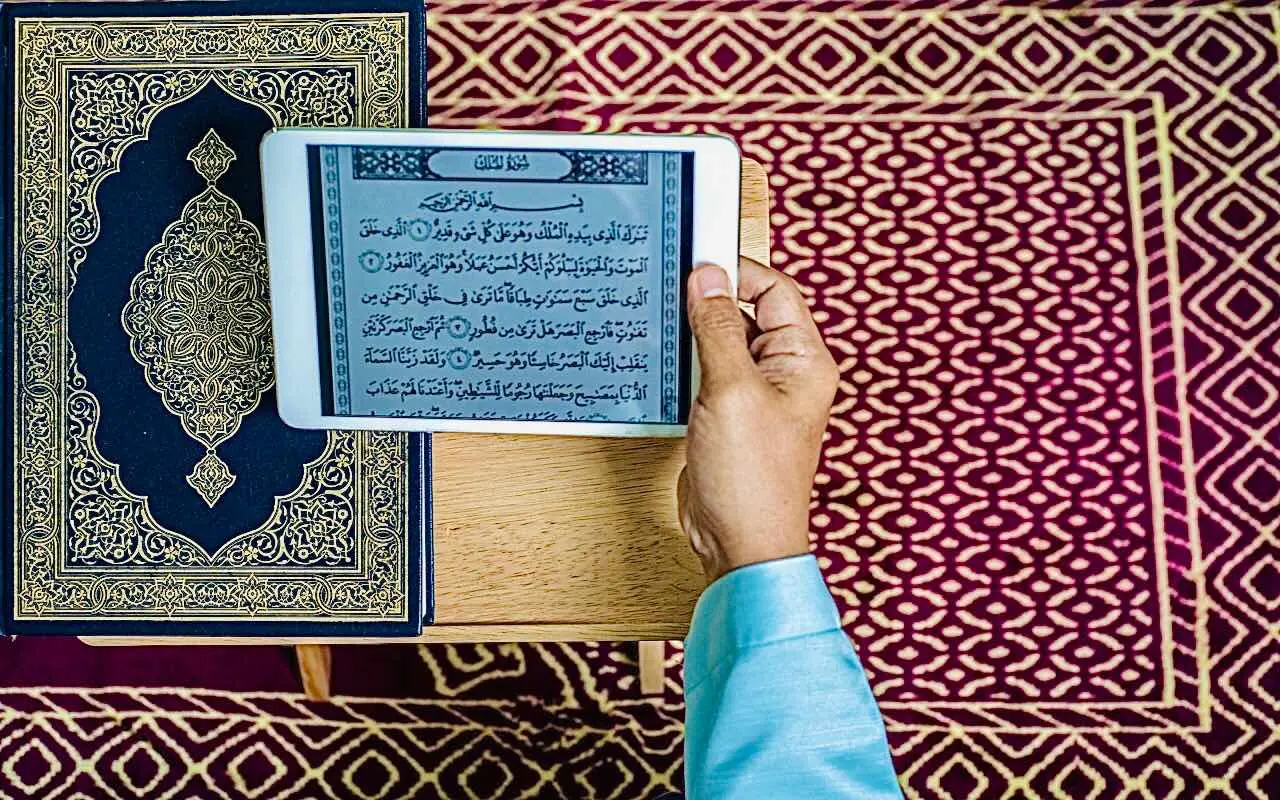 سُورَةُ المُلْكِ
بِسْمِ ٱللَّهِ ٱلرَّحْمَٰنِ ٱلرَّحِيمِ
تَبَٰرَكَ ٱلَّذِى بِيَدِهِ ٱلْمُلْكُ وَهُوَ عَلَىٰ كُلِّ شَىْءٍ قَدِيرٌ ١ ٱلَّذِى خَلَقَ
ٱلْمَوْتَ وَٱلْحَيَوٰةَ لِيَبْلُوَكُمْ أَيُّكُمْ أَحْسَنُ عَمَلًا وَهُوَ ٱلْعَزِيزُ ٱلْغَفُورُ ٢
ٱلَّذِى خَلَقَ سَبْعَ سَمَٰوَٰتٍ طِبَاقًا مَّا تَرَىٰ فِى خَلْقِ ٱلرَّحْمَٰنِ مِن
تَفَٰوُتٍ فَٱرْجِعِ ٱلْبَصَرَ هَلْ تَرَىٰ مِن فُطُورٍ ٣ ثُمَّ ٱرْجِعِ ٱلْبَصَرَ كَرَّتَيْنِ
يَنقَلِبْ إِلَيْكَ ٱلْبَصَرُ خَاسِئًا وَهُوَ حَسِيرٌ ٤ وَلَقَدْ زَيَّنَّا ٱلسَّمَآءَ
ٱلدُّنْيَا بِمَصَٰبِيحَ وَجَعَلْنَٰهَا رُجُومًا لِّلشَّيَٰطِينِ وَأَعْتَدْنَا لَهُمْ عَذَابَ